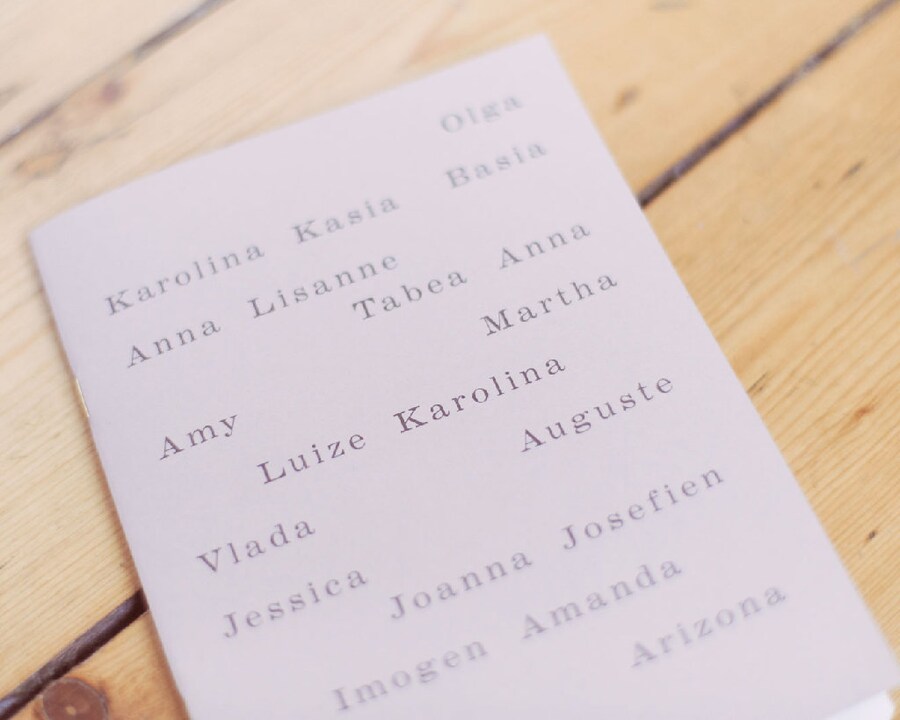 Olga
Karolina Kasia Basia
Anna Lisanne
Tabea Anna
Amy Martha
Luize Karolina
Vlada Auguste
Jessica
Joanna Josefien
Imogen Amanda
Arizona